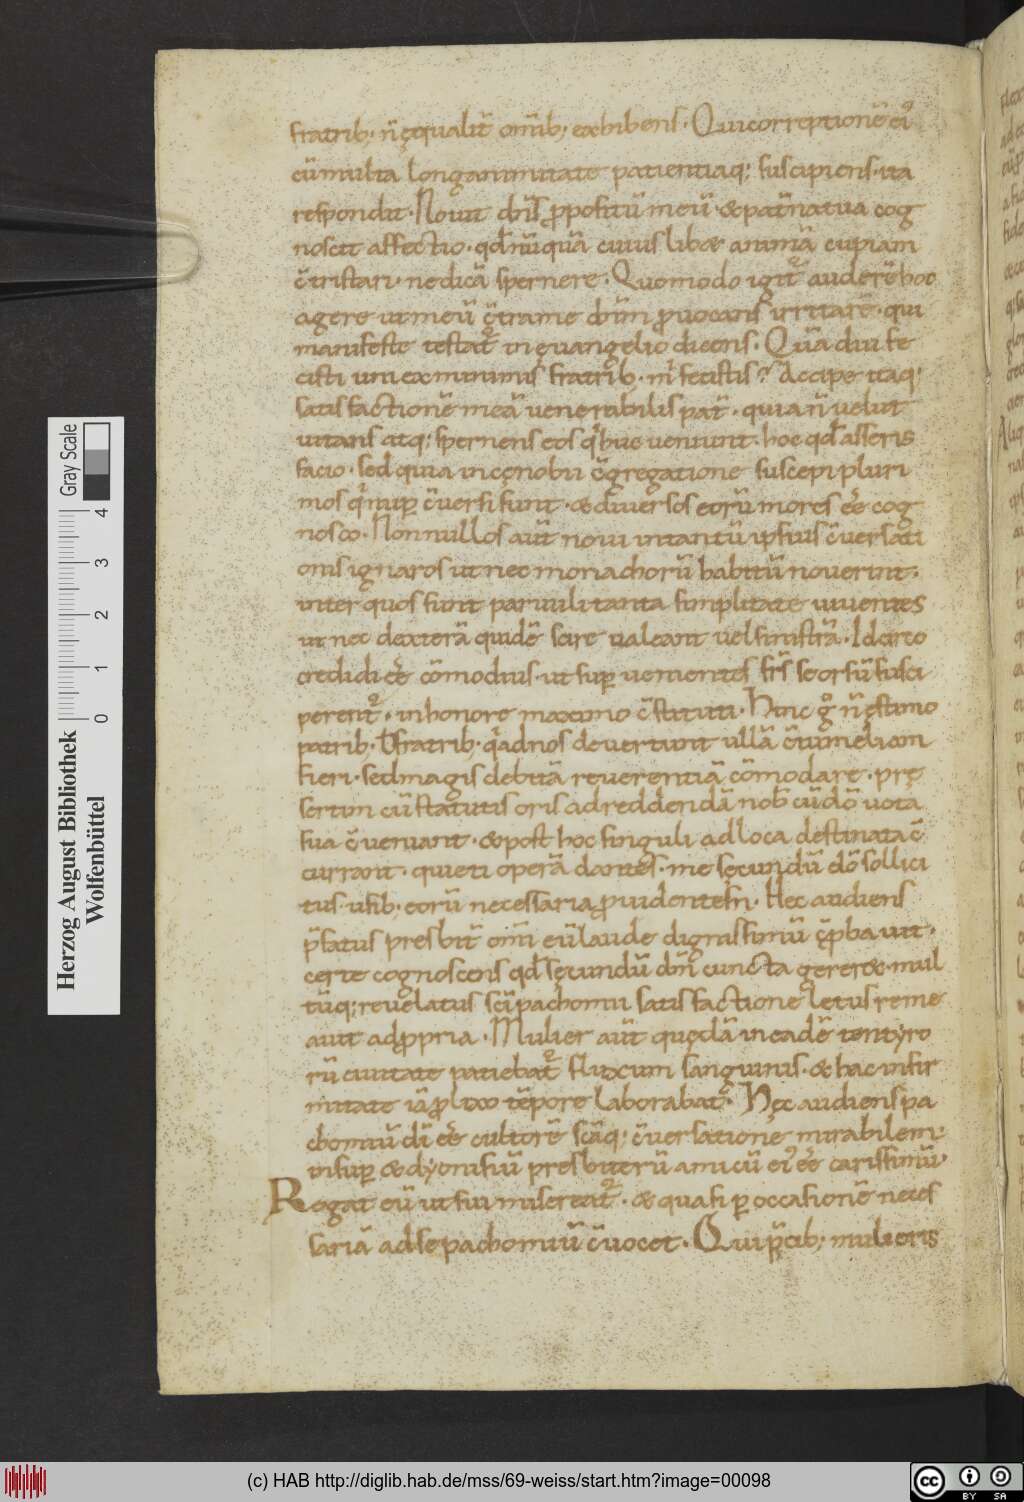 fratrib; n̄ ęqualit̄ om̄ib; exhibens. Qui correptionē ei'
cū multa longanimitate patientiaq; suscipiens. ita
respondit. Nouit dn̄s ꝓpositū meū. & pat̄natua cog
noscit affectio. qd̄ nūquā cuiuslibet animā cupiam
c̄tristari. nedicā spernere. Quomodo igit̄ auderē hoc
agere ut meū c̄tra me dn̄m ꝓuocans irritarē. qui
manifeste testat̄ in ęuangelio dicens. Quā diu fe
cisti uni ex minimis fratrib. m̄ fecistis? Accipe itaq;
satisfactionē meā uenerabilis pat̄. quia n̄ uelut
uitans atq; spernens eos q' huc ueniunt. hoc qd̄ asseris
facio. sed quia in cęnobii c̄gregatione suscepi pluri
mos q' nuꝑ c̄uersi sunt. & diuersos eorū mores ēe cog
nosco. Nonnullos aūt noui intantū ipsius c̄uersati
onis ignaros ut nec monachorū habitū nouerint.
inter quos sunt paruuli tanta simplitate uiuentes
ut nec dexterā quidē scire ualeant uel sinistrā. Idcirco
credidi ēe cōmodius. ut suꝑuenientes frs̄ seorsū susci
perent̄. in honore maximo c̄stituti. Hinc g° n̄ ęstimo
patrib. ł fratrib; q' ad nos deuertunt ullā c̄tumeliam
fieri. sed magis debitā reuerentiā cōmodare. pre
sertim cū statutis oris ad reddendā nob̄ cū dō uota
sua c̄ueniant. & post hoc singuli ad loca destinata c̄
currant. quieti operā dantes. me secundū dō sollici
tus. usib; eorū necessaria ꝓuidente. Hec audiens
p̄fatus presbit̄ om̄ eū laude dignissimū cōꝓbauit.
certe cognoscens qd̄ sęcundū dn̄ cuncta gereret. mul
tūq; reuelatus sc̄i pachomii satisfactione lętus reme
auit ad ꝓpria. Mulier aūt quędā in eadē tentyro
rū ciuitate patiebat̄ fluxum sanguinis. & hac infir
mitate iā ꝓlixo tēpore laborabat̄. Hęc audiens pa
chomiū dī ēe cultorē sc̄aq; c̄uersatione mirabilem.
insuꝑ & dyonisiū presbiterū amicū ei' ēe carissimū.
Rogat eū ut sui misereat̄. & quasi ꝑ occasionē neces
sariā ad se pachomiū c̄uocet. Qui p̄cib; mulieris
Gray Scale
0 1 2 3 4
Herzog August Bibliothek
Wolfenbüttel
(c) HAB http://diglib.hab.de/mss/69-weiss/start.htm?image=00098
cc BY SA